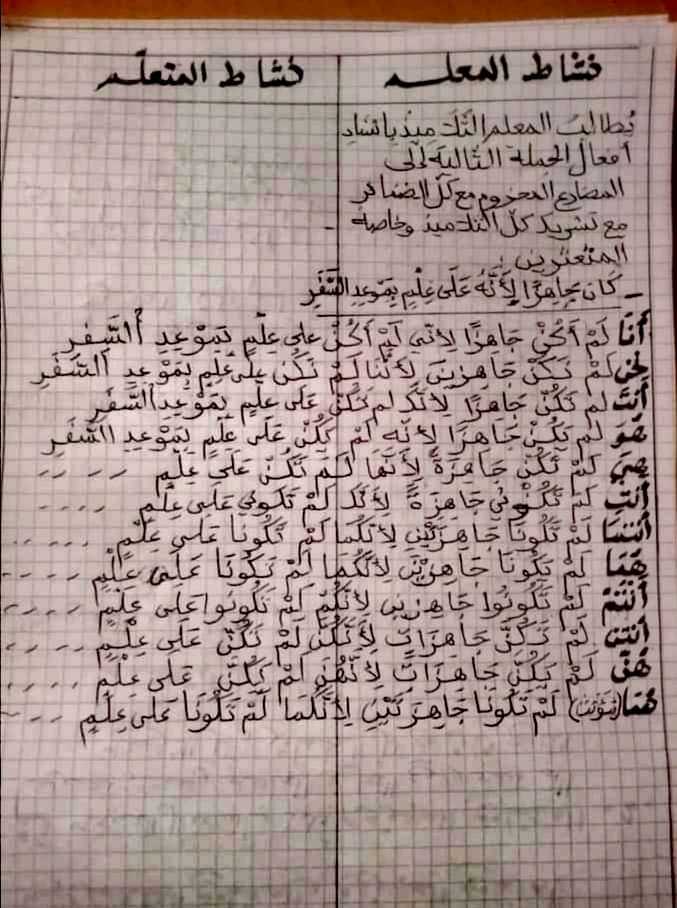 نشاط المعلم
نشاط المتعلّم
يُطالب المعلم التلاميذ بإسناد
أفعال الجملة التالية إلى
المضارع المجزوم مع كلّ الضمائر
مع تشريك كلّ التلاميذ وخاصة
المتعثرين.
ـ كان جاهزًا لأنّهُ عَلَى عِلْمٍ بِمَوْعِدِ السَّفَرِ
أَنَا لَمْ أَكُنْ جَاهِزًا لِأَنِّي لَمْ أَكُنْ عَلَى عِلْمٍ بِمَوْعِدِ السَّفَرِ
نَحْنُ لَمْ نَكُنْ جَاهِزِينَ لأَنَّنَا لَمْ نَكُنْ عَلَى عِلْمٍ بِمَوْعِدِ السَّفَرِ
أَنْتَ لَمْ تَكُنْ جَاهِزًا لِأَنَّكَ لم تَكُنْ عَلَى عِلْمٍ بِمَوْعِدِ السَّفَرِ
هُوَ لَمْ يَكُنْ جَاهِزًا لِأَنَّه لَمْ يَكُنْ عَلَى عِلْمٍ بِمَوْعِدِ السَّفَرِ
هِيَ لَمْ تَكُنْ جَاهِزَةً لِأَنَّهَا لَمْ تَكُنْ عَلَى عِلْمٍ - - - -
أَنْتِ لَمْ تَكُونِي جَاهِزَةً لِأَنَّكِ لَمْ تَكُونِي عَلَى عِلْمٍ - - - -
أَنْتُمَا لَمْ تَكُونَا جَاهِزَيْنِ لِأَنَّكُمَا لَمْ تَكُونَا عَلَى عِلْمٍ - - - -
هُمَا لَمْ يَكُونَا جَاهِزَيْنِ لِأَنَّكُمَا لَمْ يَكُونَا عَلَى عِلْمٍ - - - -
أَنْتُمْ لَمْ تَكُونُوا جَاهِزِينَ لِأَنَّكُمْ لَمْ تَكُونُوا عَلَى عِلْمٍ - - - -
أَنْتُنَّ لَمْ تَكُنَّ جَاهِزَاتٍ لِأَنَّكُنَّ لَمْ تَكُنَّ عَلَى عِلْمٍ - - - -
هُنَّ لَمْ يَكُنَّ جَاهِزَاتٍ لِأَنَّهُنَّ لَمْ يَكُنَّ عَلَى عِلْمٍ - - - -
هُمَا (مؤنث) لَمْ تَكُونَا جَاهِزَتَيْنِ لِأَنَّكُمَا لَمْ تَكُونَا عَلَى عِلْمٍ - - -